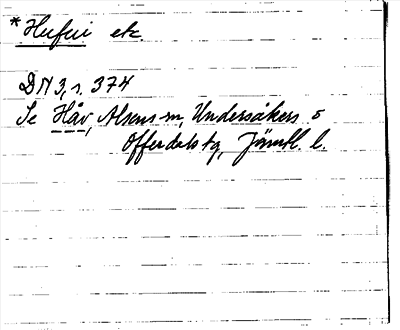 *Hufui etc.
DN 3, s. 374
Se Håv, Alsens sn, Undersåkers o
Offerdals tg, Jämtl. l.